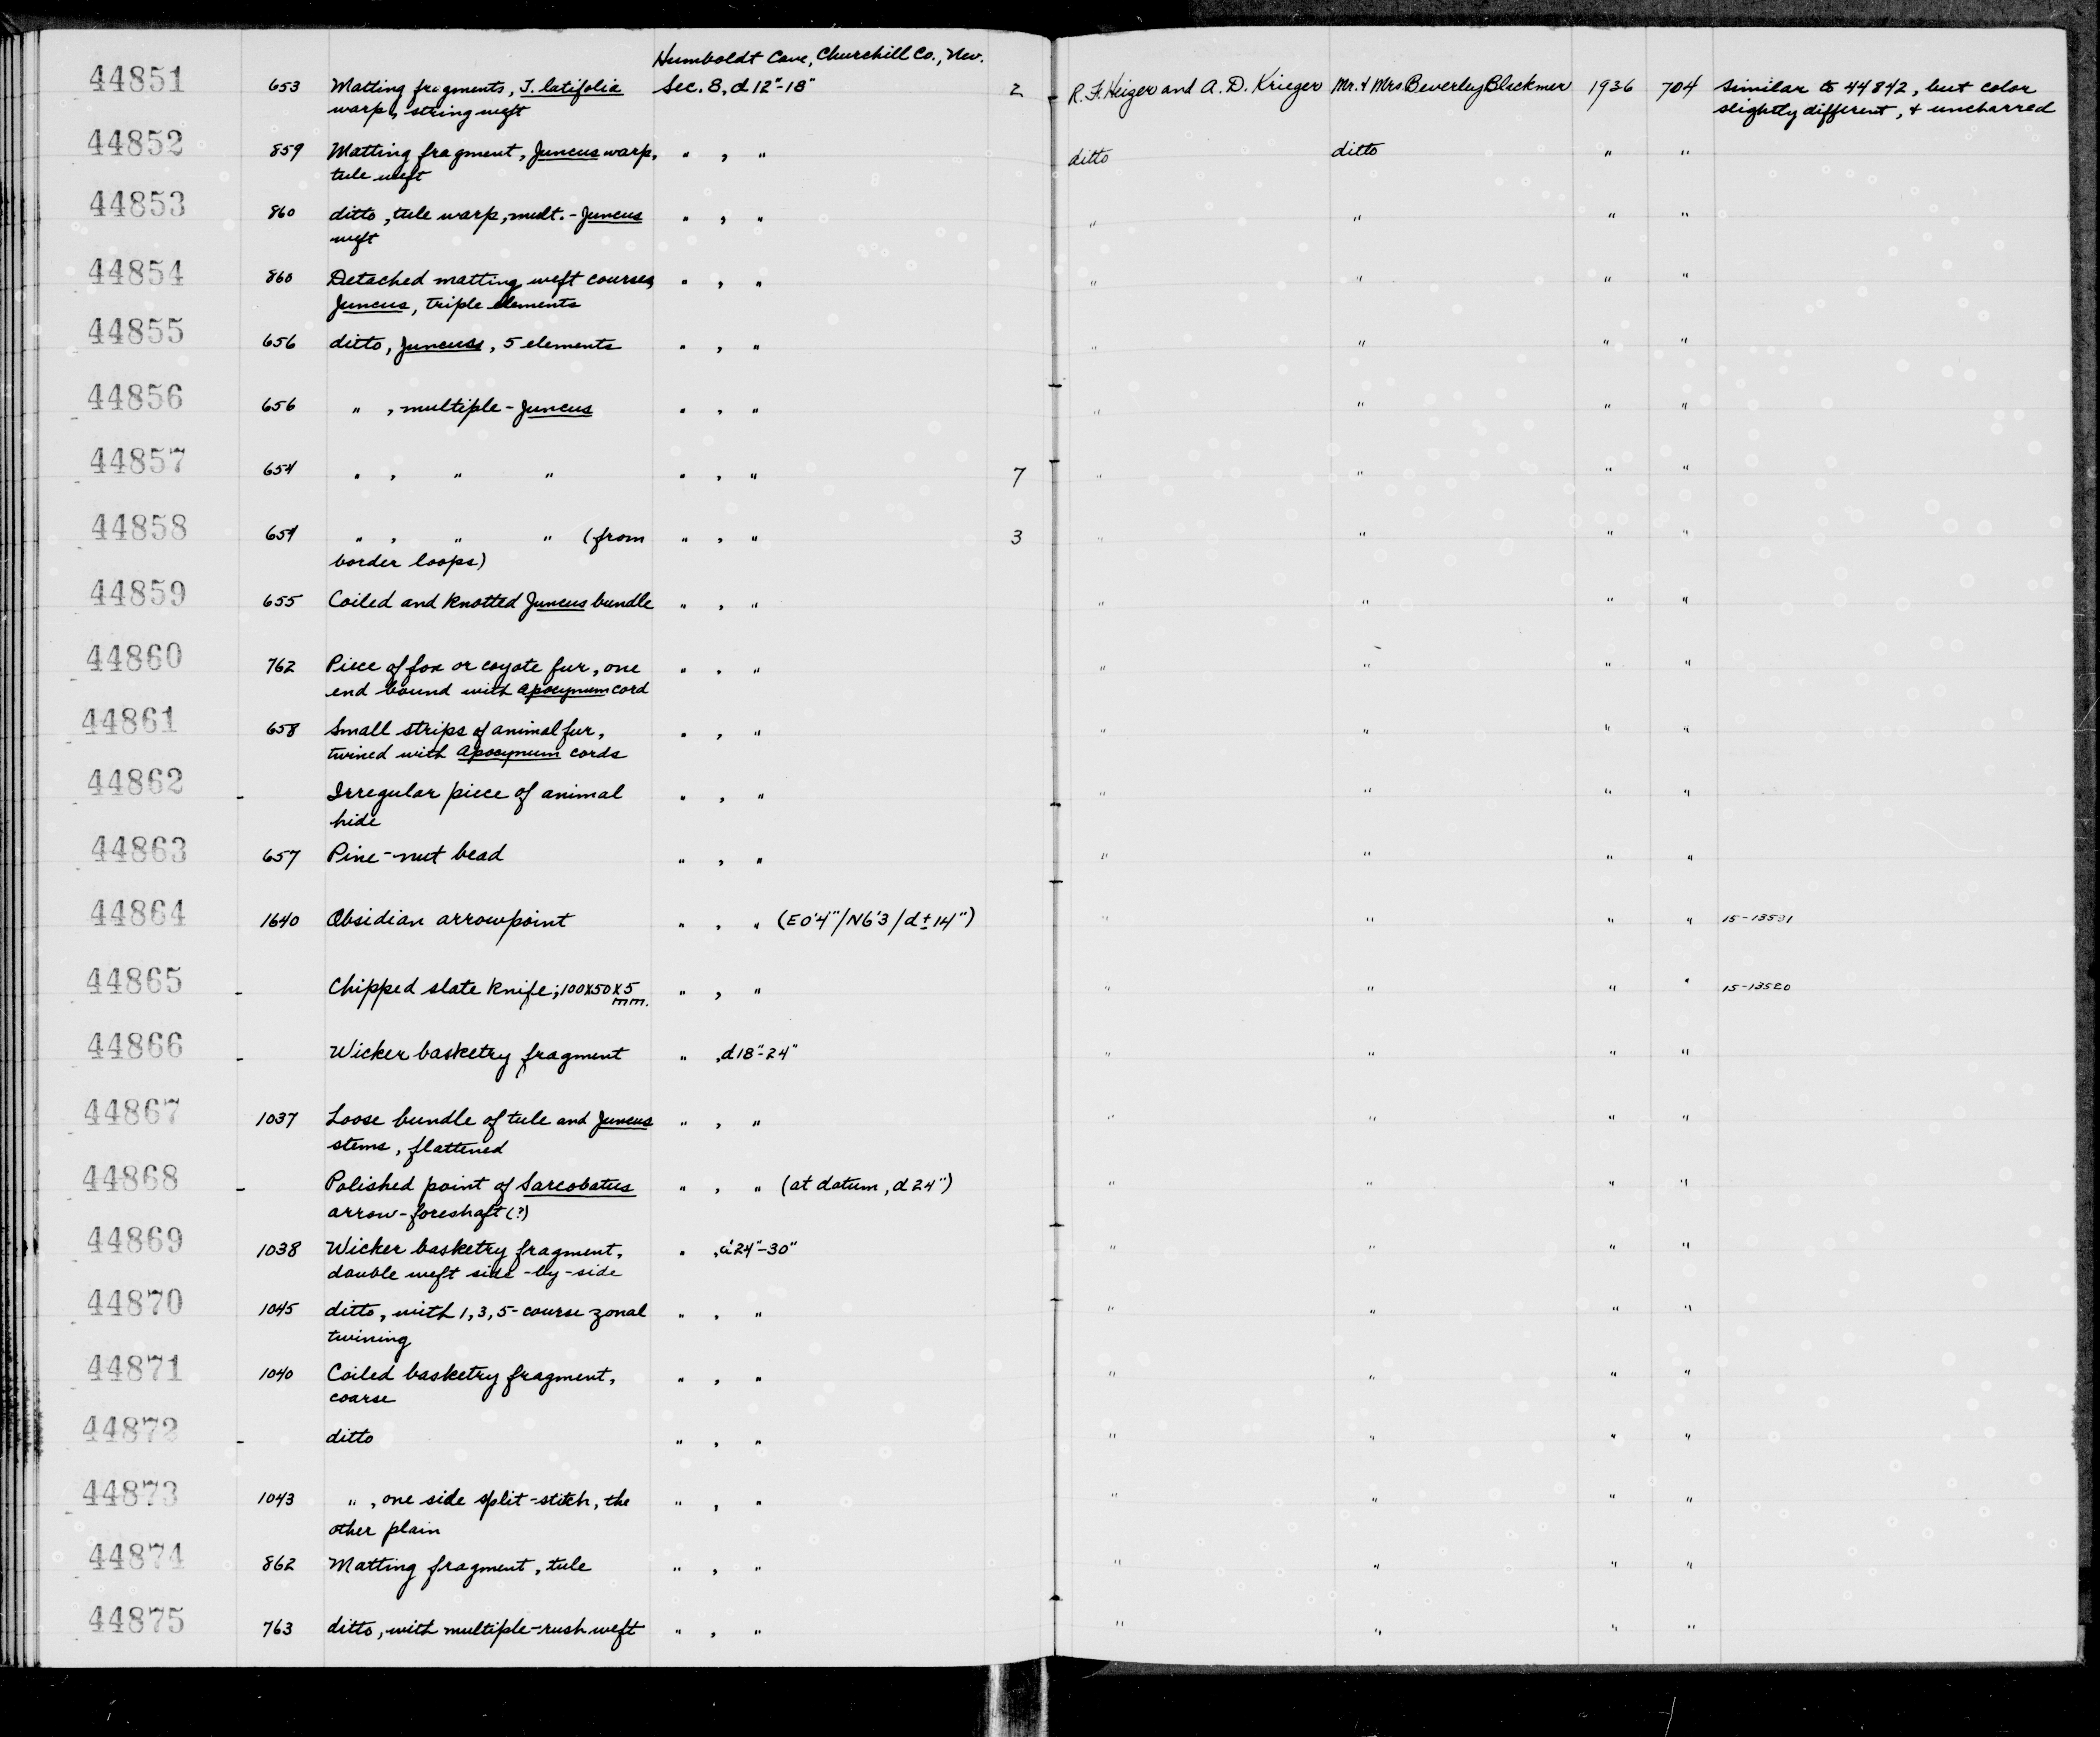 Humboldt Cave, Churchill Co., Nev.
44851 653 Matting fragments, T. latifolia Sec. 8, d 12"-18" 2 R. F. Heizer and A. D. Krieger Mr. & Mrs. Beverley Blackmer 1936 704 similar to 44842, but color
warp, string weft slightly different, & uncharred
44852 859 Matting fragment, Juncus warp, " , " ditto ditto " "
tule weft
44853 860 ditto, tule warp, mult.-Juncus " , " " " " "
weft
44854 860 Detached matting weft courses, " , " " " " "
Juncus, triple elements
44855 656 ditto, Juncus, 5 elements " , " " " " "
44856 656 " , multiple-Juncus " , " " " " "
44857 654 " , " " " , " 7 " " " "
44858 654 " , " " (from " , " 3 " " " "
border loops)
44859 655 Coiled and knotted Juncus bundle " , " " " " "
44860 762 Piece of fox or coyote fur, one " , " " " " "
end bound with Apocynum cord
44861 658 Small strips of animal fur, " , " " " " "
twined with Apocynum cords
44862 - Irregular piece of animal " , " " " " "
hide
44863 657 Pine-nut bead " , " " " " "
44864 1640 Obsidian arrowpoint " , " (E0'4"/N6'3/d±14") " " " " 15-13531
44865 - Chipped slate knife; 100x50x5 " , " " " " " 15-13520
mm.
44866 - Wicker basketry fragment " , d18"-24" " " " "
44867 1037 Loose bundle of tule and Juncus " , " " " " "
stems, flattened
44868 - Polished point of Sarcobatus " , " (at datum, d 24") " " " "
arrow-foreshaft (?)
44869 1038 Wicker basketry fragment, " , d24"-30" " " " "
double weft side-by-side
44870 1045 ditto, with 1, 3, 5-course zonal " , " " " " "
twining
44871 1040 Coiled basketry fragment, " , " " " " "
coarse
44872 - ditto " , " " " " "
44873 1043 " , one side split-stitch, the " , " " " " "
other plain
44874 862 Matting fragment, tule " , " " " " "
44875 763 ditto, with multiple-rush weft " , " " " " "